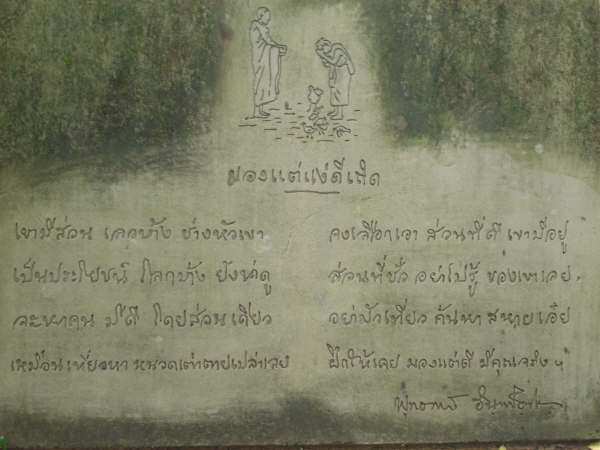 มองแต่แง่ดีเถิด
เขามีส่วน เลวบ้าง ช่างหัวเขา จงเลือกเอา ส่วนที่ดี เขามีอยู่
เป็นประโยชน์ โลกบ้าง ยังน่าดู ส่วนที่ชั่ว อย่าไปรู้ ของเขาเลย
จะหาคน มีดี โดยส่วนเดียว อย่ามัวเที่ยว ค้นหา สหายเอ๋ย
เหมือนเที่ยวหา หนวดเต่าตายเปล่าเลย ฝึกให้เคย มองแต่ดี มีคุณจริง ฯ
พุทธทาส อินฺทปญฺโญ